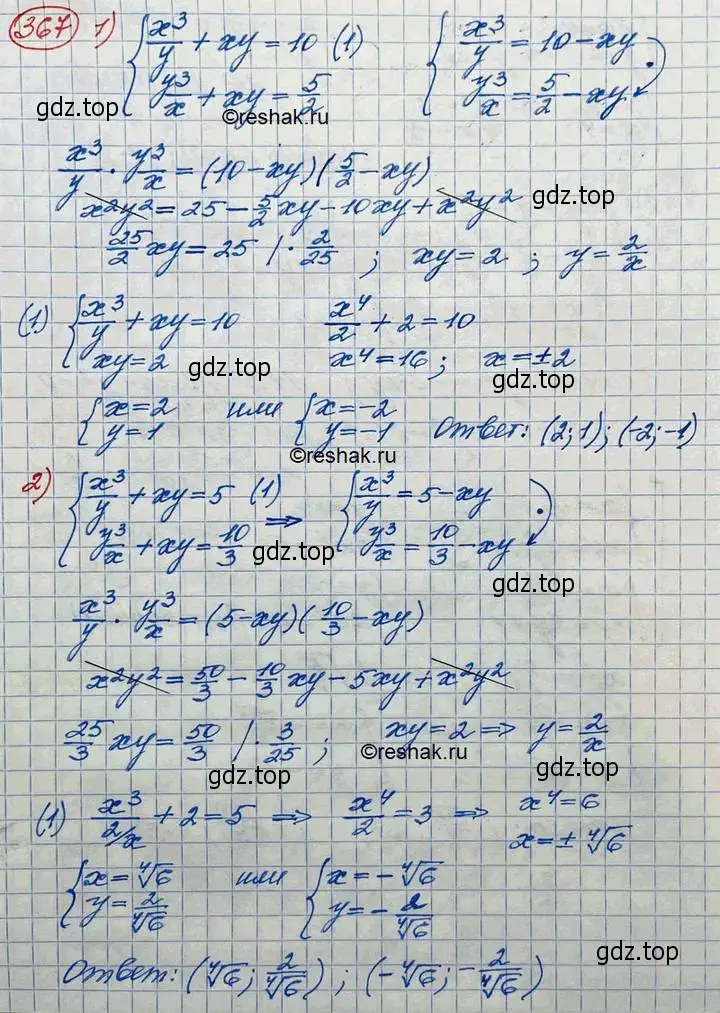 367 1) { x³/y + xy = 10 (1) { x³/y = 10 - xy
y³/x + xy = 5/2 y³/x = 5/2 - xy ·
gdz.top gdz.top
©reshak.ru
x³/y · y³/x = (10 - xy)(5/2 - xy)
x²y² = 25 - 5/2 xy - 10xy + x²y² gdz.top
25/2 xy = 25 | · 2/25 ; xy = 2 ; y = 2/x
(1) { x³/y + xy = 10 x⁴/2 + 2 = 10
xy = 2 x⁴ = 16 ; x = ±2
gdz.top gdz.top
{ x = 2 или { x = -2
y = 1 y = -1 Ответ: (2; 1); (-2; -1)
©reshak.ru
2) { x³/y + xy = 5 (1) ⇒ { x³/y = 5 - xy
y³/x + xy = 10/3 y³/x = 10/3 - xy ·
gdz.top gdz.top
x³/y · y³/x = (5 - xy)(10/3 - xy)
gdz.top
x²y² = 50/3 - 10/3 xy - 5xy + x²y²
25/3 xy = 50/3 | · 3/25 ; xy = 2 ⇒ y = 2/x
©reshak.ru
gdz.top gdz.top
(1) x³/2/x + 2 = 5 ⇒ x⁴/2 = 3 ⇒ x⁴ = 6
x = ± ⁴√6
{ x = ⁴√6 или { x = - ⁴√6
y = 2/⁴√6 y = - 2/⁴√6
Ответ: (⁴√6; 2/⁴√6) ; (-⁴√6; - 2/⁴√6)
gdz.top gdz.top